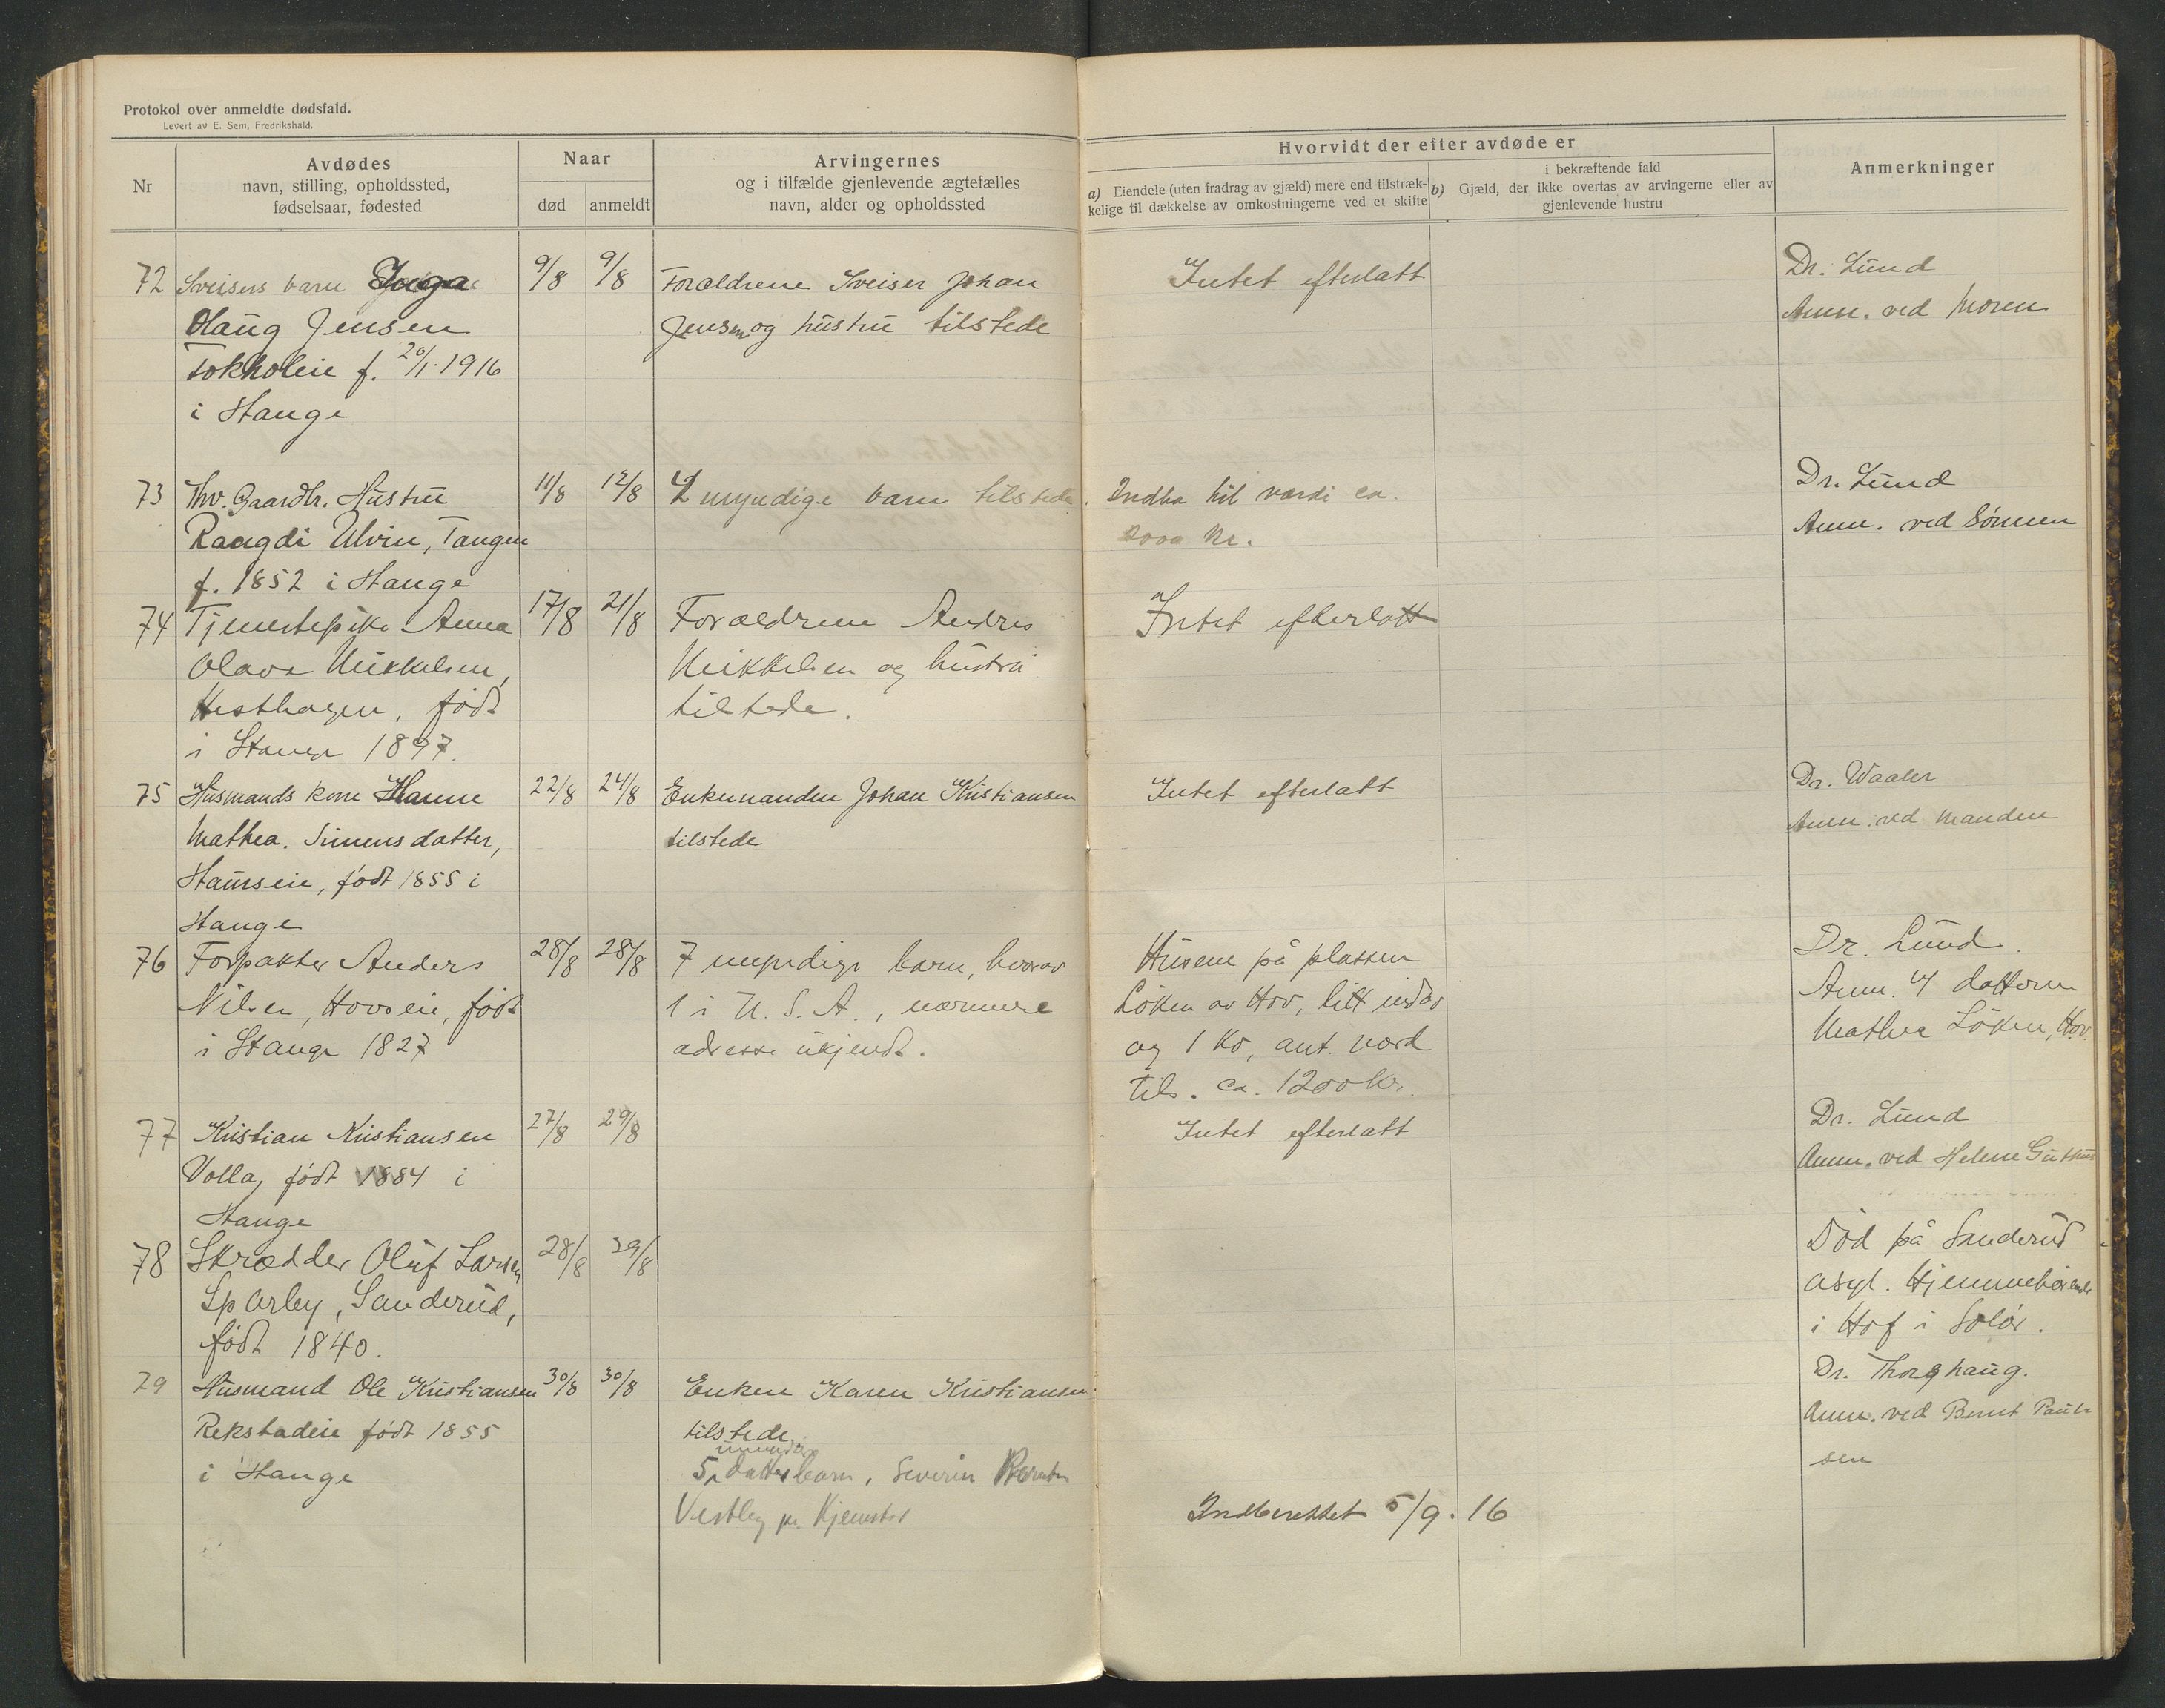 Protokol over anmeldte dødsfald.
Levert av E. Sem, Fredrikshald.
Nr
Avdødes
navn, stilling, opholdssted,
fødselsaar, fødested
Naar
død
anmeldt
Arvingernes
og i tilfælde gjenlevende ægtefælles
navn, alder og opholdssted
Hvorvidt der efter avdøde er
a) Eiendele (uten fradrag av gjæld) mere end tilstræk-
kelige til dækkelse av omkostningerne ved et skifte
i bekræftende fald
b) Gjæld, der ikke overtas av arvingerne eller av
gjenlevende hustru
Anmerkninger
72 Sveisers barn Inga 9/8 9/8 Forældrene Sveiser Johan Intet efterlatt Dr. Lund
Olaug Jensen Jensen og hustru tilstede Anm. ved Moren
Tokholeie f. 20/1 1916
i Stange
73 Fhv. Gaardbr. Hustru 11/8 12/8 myndige barn tilstede. Indbo til værdi ca. Dr. Lund
Rangdi Ulvin, Tangen 2000 kr. Anm. ved Sønnen
f. 1852 i Stange
74 Tjenestepike Anna 17/8 21/8 Forældrene Andres Intet efterlatt
Olava Mikkelsen, Mikkelsen og hustru
Hesthagen, født tilstede.
i Stange 1897.
75 Husmands kone Hanne 22/8 24/8 Enkemanden Johan Kristiansen Intet efterlatt Dr. Waaler
Mathea. Simensdatter, tilstede Anm. ved Manden
Hamseie, født 1855 i
Stange
76 Forpakter Anders 28/8 28/8 7 myndige barn, hvorav Husene på plassen Dr. Lund.
Nilsen, Hovseie, født 1 i U. S. A., nærmere Löken av Hov, litt indbo Anm. v/ datteren
i Stange 1827 adresse ukjendt. og 1 ko, ant. værd Mathea Löken, Hov.
tils. ca. 1200 kr.
77 Kristian Kristiansen 27/8 29/8 Intet efterlatt Dr. Lund
Volla, født 1884 i Anm. ved Helene
Stange
78 Skrædder Oluf Larsen 28/8 29/8 Död på Sanderud
Sparby, Sanderud, asyl. Hjemmehörende
født 1840. i Hof i Solör.
79 Husmand Ole Kristiansen 30/8 30/8 Enken Karen Kristiansen Dr. Thorshaug.
Rekstadeie født 1855 tilstede Anm. ved Bernt Paul-
sen
i Stange 5 datterbarn, Severin
Vestby pr.
Indberettet 5/9. 16